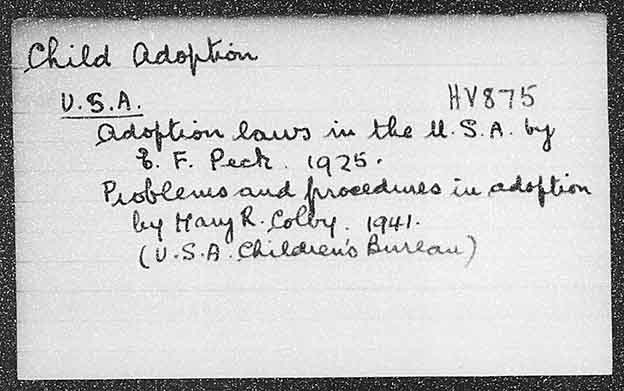 Child Adoption
U.S.A. HV875
Adoption laws in the U.S.A. by
E. F. Peck. 1925.
Problems and procedures in adoption
by Mary R. Colby. 1941.
(U.S.A. Children's Bureau)